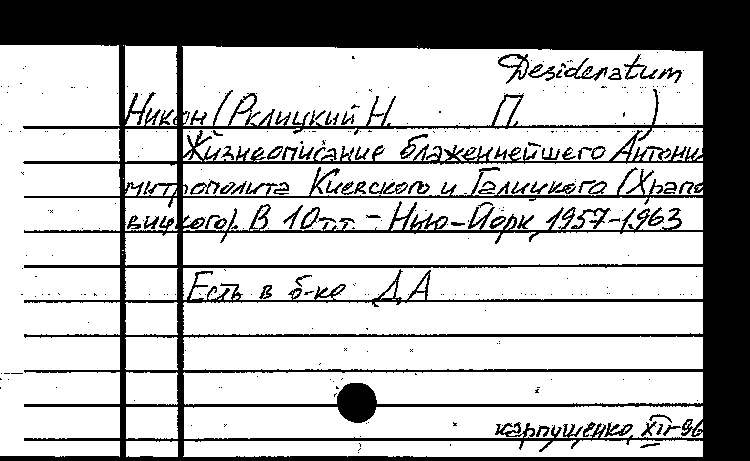 Desideratum
Никон (Рклицкий, Н. П. )
Жизнеописание блаженнейшего Антони
митрополита Киевского и Галицкого (Храпо
вицкого). В 10 т.т. - Нью-Йорк, 1957-1963
Есть в б-ке ДА
карпущенко, XII-96